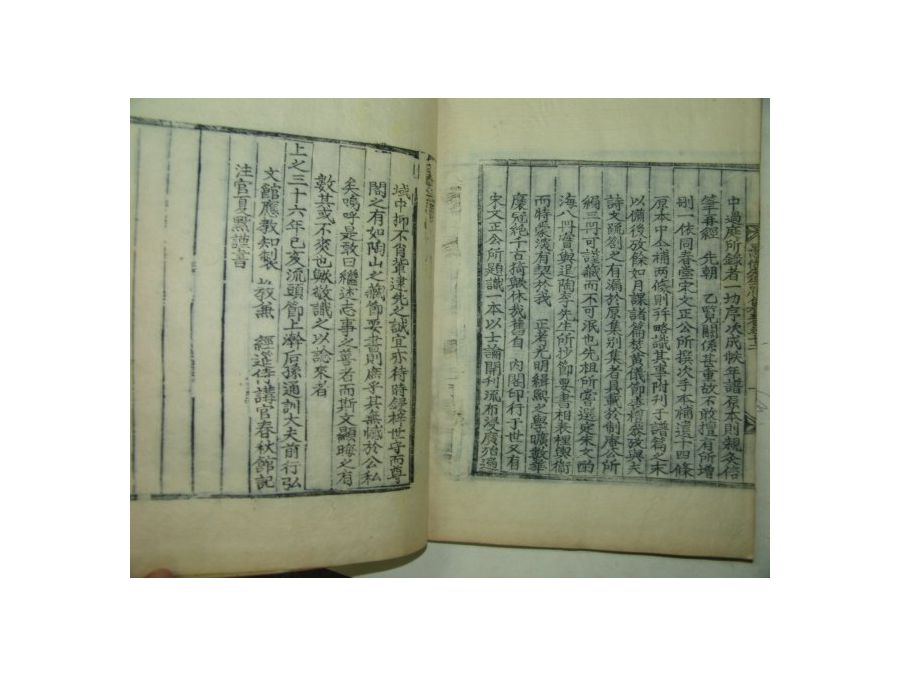 中過庭所錄者一切序次成帙年譜原本則親灸信
筆舂經 先朝 乙覽關係甚重故不敢擅有所增
刪一依同春堂宋文正公所撰次手本補遺十四條
原本中今補兩條則幷略識其事附刊于譜篇之末
以備後攷餘如月課諸篇焚黃儀節喪禮叅攷與夫
詩文疏劄之有漏於原集別集者具載於制庵公所
編三冊可謹藏而不可泯也先祖所嘗選定朱文酌
海八冊實與退陶李先生所抄節要書相表裡輿衛
而特蒙深有契於我 正考光明緝熙之學曠數華
袞冠絶千古猗歟休哉舊自 內閣印行于世又有
宋文正公所題識一本以士論開刊流布浸廣殆遍
域中抑不肖輩追先之誠宜亦待時鋟梓世守而尊
閣之有如陶山之藏節要書則庶乎其無憾於公私
矣嗚呼是敢曰繼述志事之善者而斯文顯晦之有
數其或不爽也歟敬識之以諗來者
上之三十六年己亥流頭節上澣后孫通訓大夫前行弘
文館應敎知製 敎兼 經筵侍講官春秋館記
注官 謹書